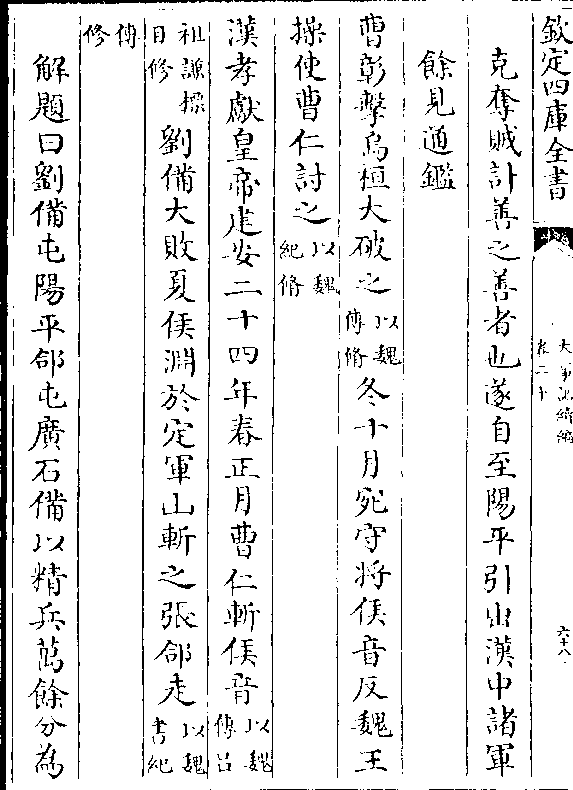 欽定四庫全書
大事記續編
卷二十
六十八
克奪賊計善之善者也遂自至陽平引出漢中諸軍
餘見通鑑
曹彰擊烏桓大破之以魏傳脩冬十月宛守將侯音反魏王
操使曹仁討之以魏紀脩
漢孝獻皇帝建安二十四年春正月曹仁斬侯音以魏傳呂
祖謙標目修劉備大敗夏侯淵於定軍山斬之張郃走以魏書紀
傳修
解題曰劉備屯陽平郃屯廣石備以精兵萬餘分為